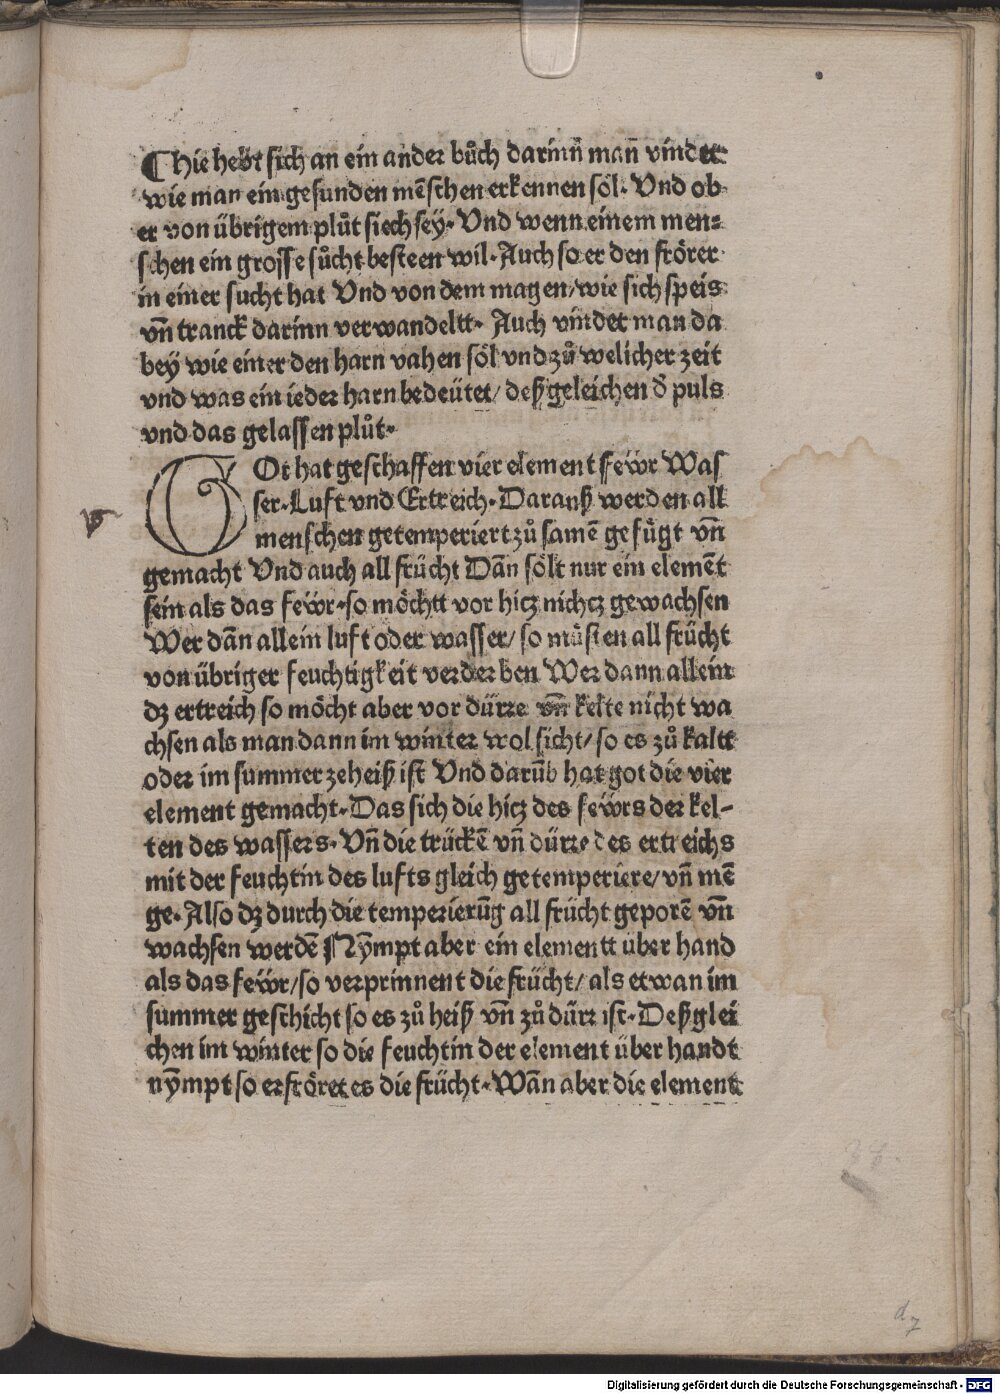 ¶ hie hebt sich an ein ander bůch darinn̄ man̄ vindet
wie man ein gesunden mēschen erkennen söl. Vnd ob
er von übrigem plůt siech sey. Vnd wenn einem men⸗
schen ein grosse sůcht besteen wil. Auch so er den frörer
in einer sucht hat Vnd von dem magen/ wie sich speis
vn̄ tranck darinn verwandeltt. Auch vindet man da
bey wie einer den harn vahen söl vnd zů welicher zeit
vnd was ein ieder harn bedeütet/ deßgeleichen d̄ puls
vnd das gelassen plůt.
GOt hat geschaffen vier element fewr Was
ser. Luft vnd Ertreich. Darauß werden all
menschen getemperiert zů samē gefügt vn̄
gemacht Vnd auch all frücht Dān sölt nur ein elemēt
sein als das fewr. so möchtt vor hicz nichcz gewachsen
Wer dān allein luft oder wasser/ so müsten all frücht
von übriger feuchtigkeit verderben Wer dann allein
dz ertreich so möcht aber vor dürre vn̄ kelte nicht wa
chsen als man dann im winter wol sicht/ so es zů kaltt
oder im summer zeheiß ist Vnd darūb hat got die vier
element gemacht. Das sich die hicz des fewrs der kel-
ten des wassers. Vn̄ die trückē vn̄ dürre des ertreichs
mit der feuchtin des lufts gleich getemperiere/ vn̄ mē
ge. Also dz durch die temperierūg all frücht geporē vn̄
wachsen werdē Nȳmpt aber ein elementt über hand
als das fewr/ so verprinnent die frücht/ als etwan im
summer geschicht so es zů heiß vn̄ zů dürr ist. Deßglei
chen im winter so die feuchtin der element über handt
nȳmpt so erfröret es die frücht. Wān aber die element
d7
Digitalisierung gefördert durch die Deutsche Forschungsgemeinschaft - DFG